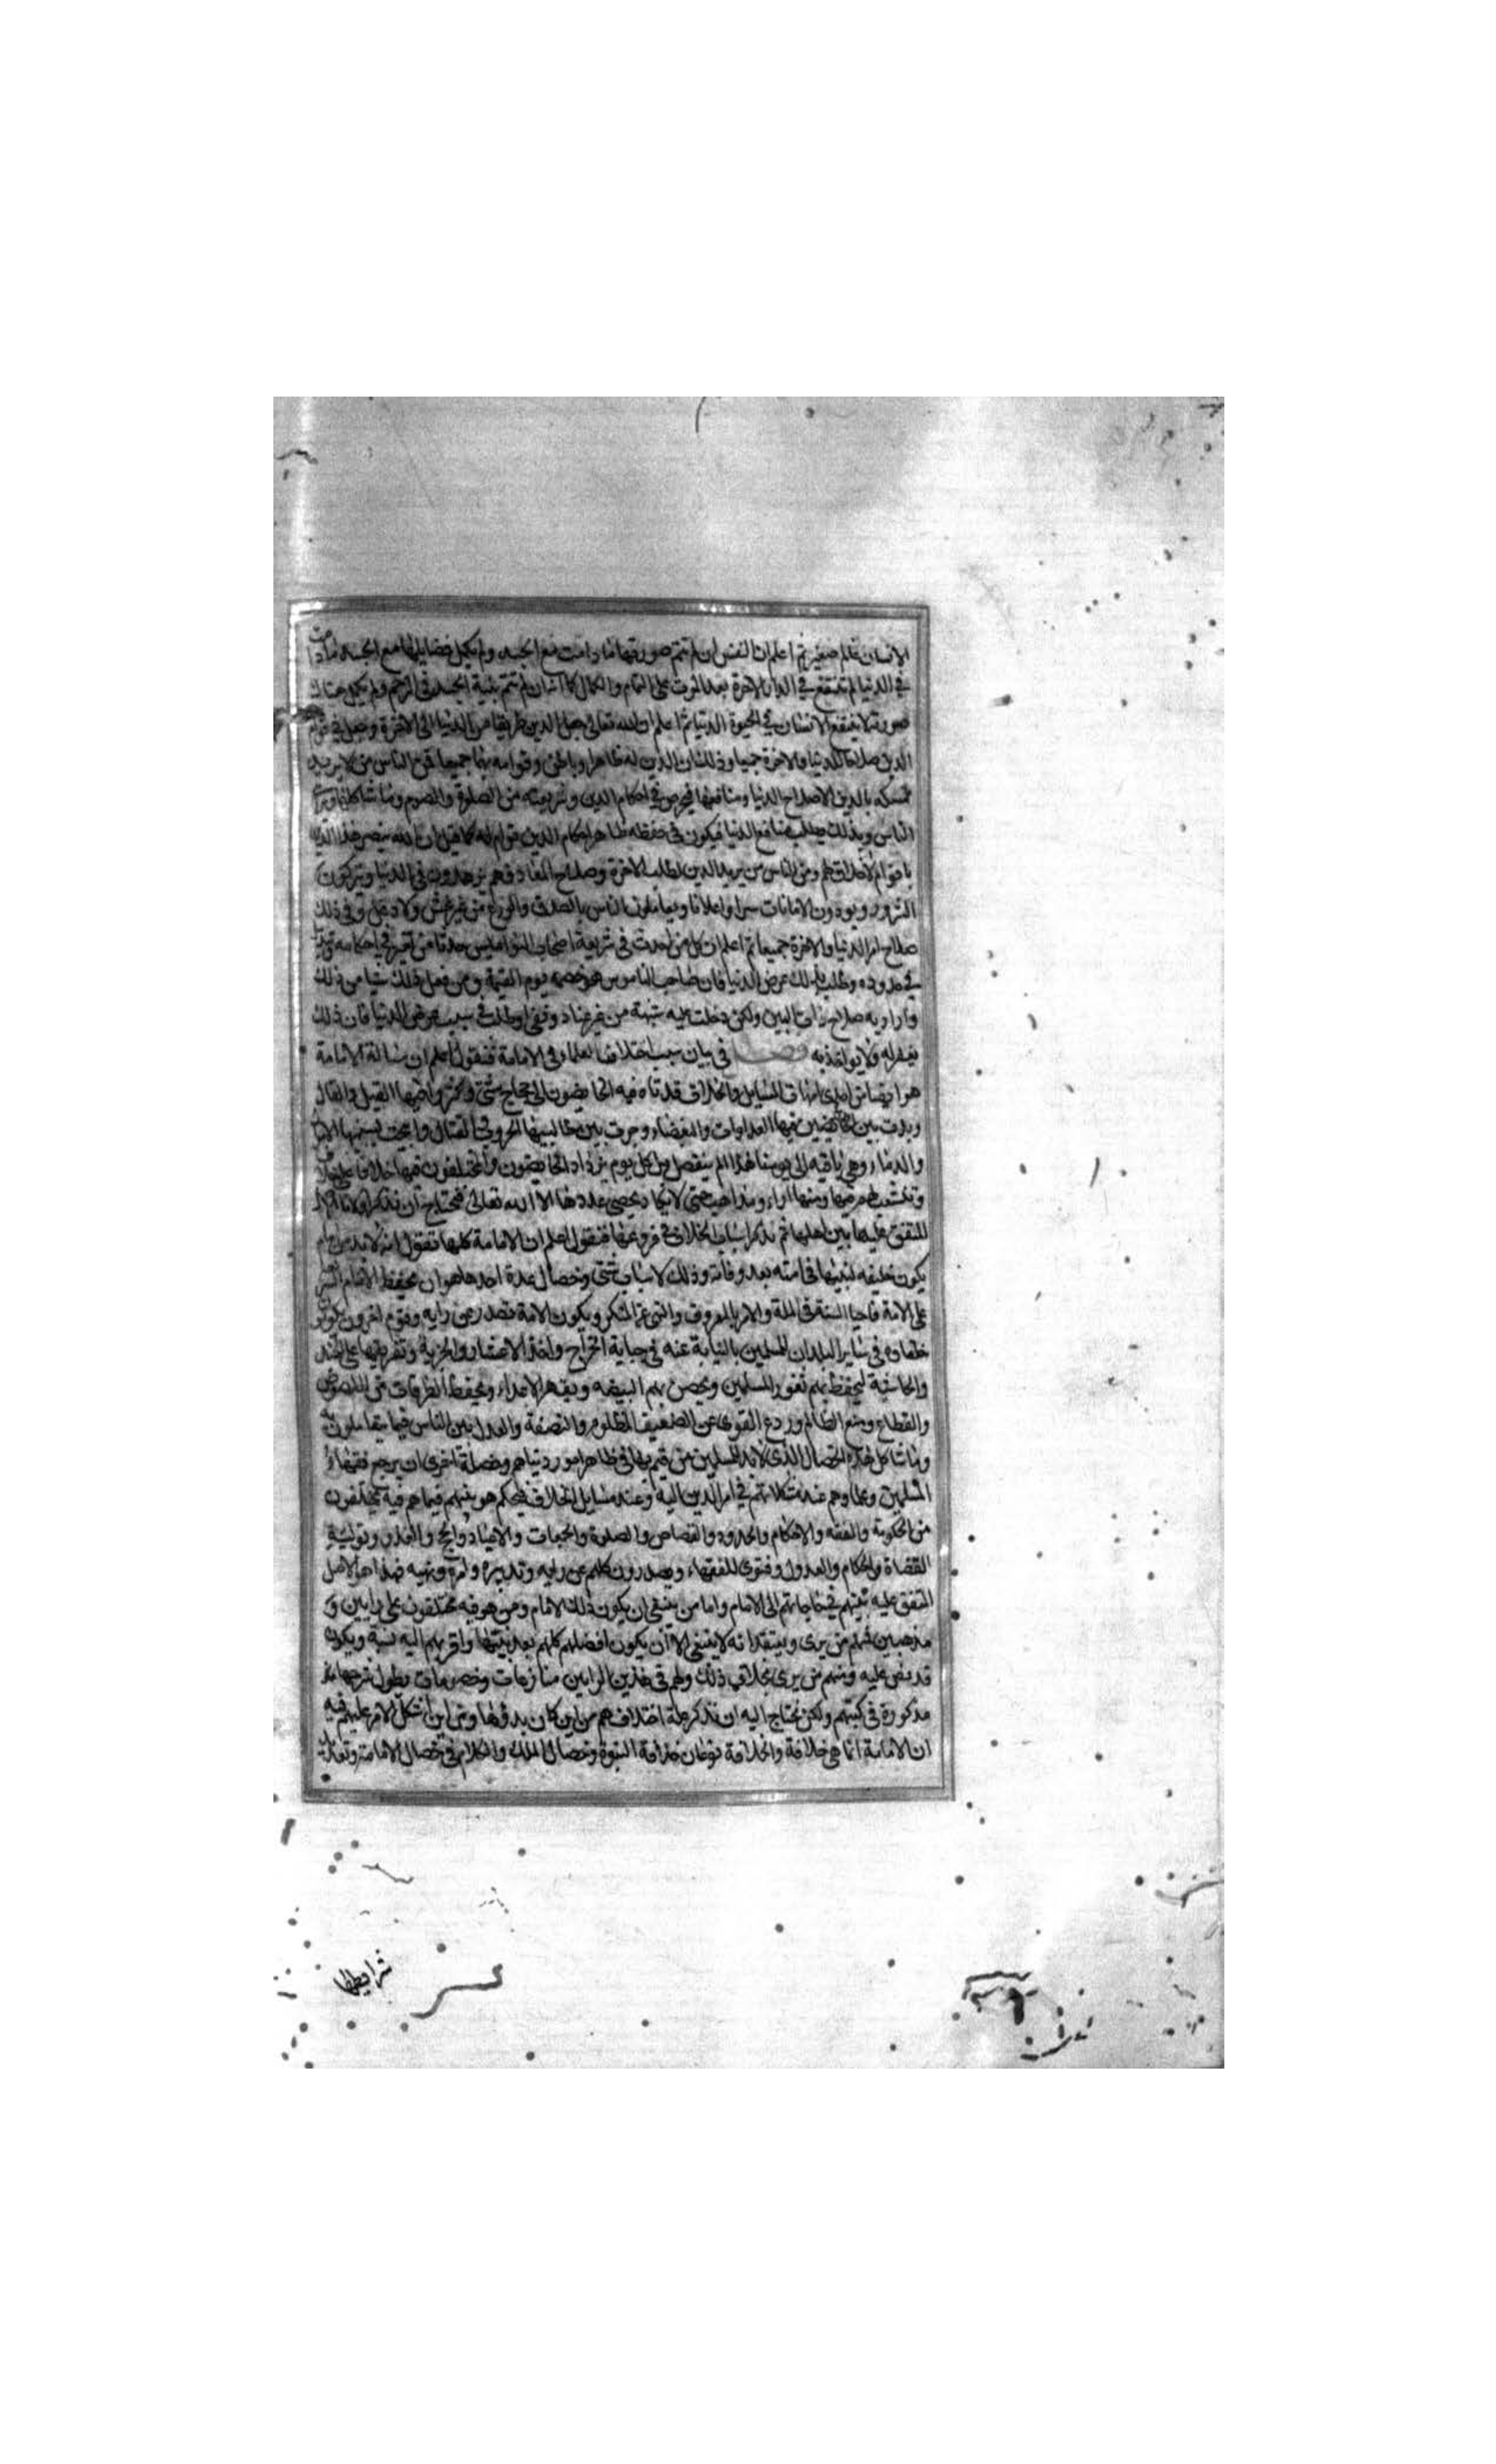 الانسان عالم صغير ثم اعلم ان النفس ان لم تتم صورتها ما دامت مع الجسد ولم يكمل فضايلها مع الجسد ما دامت
في الدنيا لم تنتفع في الدار الاخرة بعد الموت على التمام والكمال كما انه ان لم تتم بنية الجسد في الرحم ولم يكمل هناك
صورته لا ينتفع الانسان في الحيوة الدنيا ثم اعلم ان الله تعالى جعل الدين طريقا من الدنيا الى الاخرة وجعل في قوام
الدين صلاحا للدنيا والاخرة جميعا وذلك ان الدين له ظاهر وباطن وقوامه بهما جميعا فمن الناس من لا يريد
تمسكه بالدين الا صلاح الدنيا ومنافعها فيحرص في احكام الدين وشريعته من الصلوة والصوم وما شاكلها
الناس وبذلك يطلب منافع الدنيا فيكون في حفظه ظاهر احكام الدين قوام له كما قيل ان الله ينصر هذا الدين
باقوام لا خلاق لهم ومن الناس من يريد الدين لطلب الاخرة وصلاح المعاد فهم يزهدون في الدنيا ويتركون
الشرور ويودون الامانات سرا واعلانا ويعاملون الناس بالصدق والورع من غير غش ولا دغل وفي ذلك
صلاح امر الدنيا والاخرة جميعا ثم اعلم ان كل من احدث في شريعة اصحاب النواميس حدثا من تغيير في احكامه
في حدوده وطلب بذلك عرض الدنيا فان صاحب الناموس هو خصمه يوم القيمة ومن فعل ذلك شيا من ذلك
واراد به صلاح ذات البين ولكن دخلت عليه شبهة من غير عناد وطلب عرض الدنيا فان ذلك
يغفر له ولا يواخذ به فصل في بيان سبب اختلاف العلماء في الامامة فنقول اعلم ان مسالة الامامة
هي ايضا من احدى امهات المسايل والخلاف قد تاه فيه الخايضون الى حجاج شتى وكثر فيها القيل والقال
وبدت بين الخايضين فيها العداوات والبغضاء وجرت بين طالبيها الحروب والقتال وابيحت بسببها الاموال
والدماء وهي باقية الى يومنا هذا لم ينفصل بل كل يوم يزداد الخايضون والمختلفون فيها خلافا على خلاف
وتتشعب لهم فيها ومنها اراء ومذاهب حتى لا يكاد يحصى عددها الا الله تعالى فنحتاج ان نذكر اولا الاصل
المتفق عليه بين اهلها ثم نذكر اسباب الخلاف في فروعها فنقول اعلم ان الامامة كلها تقول انه لا بد من امام
يكون خليفه لنبيها في امته بعد وفاته وذلك لاسباب شتى وخصال عدة احدها هو ان يحفظ الامام الشريعة
على الامة فاحيا السنة في الملة والامر بالمعروف والنهي عن المنكر ويكون الامة تصدر عن رايه وقوم اخرون يكونون
خلفاءه في ساير البلدان للمسلمين بالنيابة عنه في جباية الخراج واخذ الاعشار والجزية وتفريقها على الجند
والحاشية ليحفظ بهم ثغور المسلمين ويحصن بهم البيضه ويقهر الاعداء ويحفظ الطرقات من اللصوص
والقطاع ومنع الظالم وردع القوي عن الضعيف المظلوم والنصفة والعدل بين الناس فيما يتعاملون به
وما شاكل هذه الخصال الذي لا بد للمسلمين من قيم بها في ظاهر امور دنياهم وخصلة اخرى ان يرجع فقهاء
المسلمين وعلماوهم عند مشكلاتهم في امر الدين اليه وعند مسايل الخلاف فيحكم هو بينهم فيما هم فيه يختلفون
من الحكومة والفقه والاحكام والحدود والقصاص والصلوة والجمعات والاعياد والحج والغزو وتولية
القضاة والحكام والعدول وفتوى للفقهاء ويصدرون كلهم عن رايه وتدبيره وامره ونهيه فهذا هو الاصل
المتفق عليه بينهم في حاجاتهم الى الامام واما من ينبغي ان يكون ذلك الامام ومن هو فيه مختلفون على رايين و
مذهبين فمنهم من يرى ويعتقد انه لا ينبغي الا ان يكون افضلهم كلهم بعد نبيها واقربهم اليه نسبة ويكون
قد نص عليه ومنهم من يرى بخلاف ذلك ولهم في هذين الرايين منازعات وخصومات يطول شرحها
مذكورة في كتبهم ولكن نحتاج اليه ان نذكر علة اختلافهم من اين كان بدوها ومن اين اشكل الامر عليهم فيه
ان الامامة انما هي خلافة والخلافة نوعان خلافة النبوة وخصال الملك والكلام في خصال الامامة
شرايطها